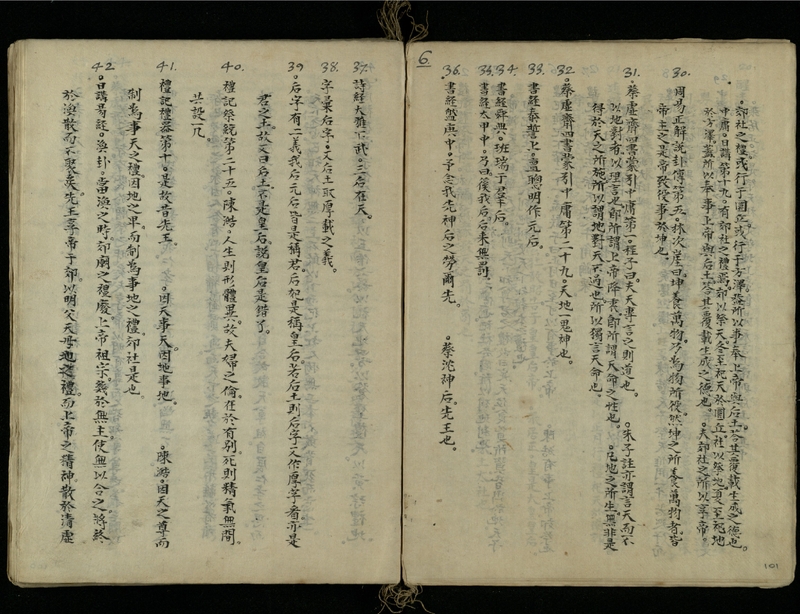 6.
郊社之禮或行于圜丘或行于方澤蓋所以事奉上帝與后土答其覆載生成之德也。
中庸日講第十九。有郊社之禮焉。郊以祭天冬至祀天於圜丘社以祭地夏至祀地
於方澤。蓋所以奉事上帝與后土答其覆載生成之德也。 。夫郊社之所以享帝。
30. 周易正解說卦傳第五。林次崖曰坤養萬物。乃為物所役。然坤之所以養萬物者。皆
帝主之。是帝致役事於坤也。
31. 。蔡虛齋四書蒙引中庸第一。程子曰夫天專言之則道也。 。朱子註亦謂言天而不
以地對者。以理言也。即所謂上帝降衷。即所謂天命之性也。 。凡地之所生無非是
得於天之所施。所以謂地對天不過也。所以獨言天命也。
32. 。蔡虛齋四書蒙引中庸第二十九。天地一鬼神也。
33. 書經泰誓上。亶聰明作元后。
34. 書經舜典。班瑞于羣后。
35. 書經太甲中。乃曰徯我后。后來無罰。
36. 。書經盤庚中。予念我先神后之勞爾先。 。蔡沈神后先王也。
37. 詩經大雅下武。三后在天。
38. 字彙后字。又后土取厚載之義。
39 。后字有二義我后元后皆是稱君。后如是稱皇后。若后土則后字又作厚字看亦是
君之其故文曰后土。不是皇后。講皇后是錯了。
40. 禮記祭統第二十五。陳澔。人生則形體異。故夫婦之倫在於有別。死則精氣無間。
共設一几。
41. 禮記禮器第十。是故昔先王 。因天事天。因地事地。 。陳澔。因天之尊而
制為事天之禮。因地之卑而制為事地之禮。郊社是也。
42 。日講易經。渙卦。當渙之時郊廟之禮廢。上帝祖宗。幾於無主。使無以合之。將終
於渙散而不聚矣。先王享帝于郊以明父天母地之禮。而上帝之精神散於清虛
101